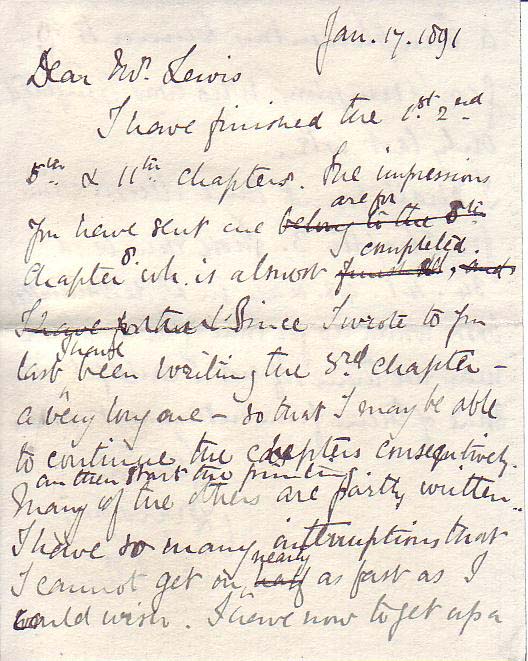 Jan. 17. 1891
Dear Mr. Lewis
I have finished the 1st 2nd
5th & 11th chapters. The impressions
are for
you have sent me belong to the 8th
completed.
Chapter 8 wh. is almost finished, and
I have further Since I wrote to you
I have
last been writing the 3rd chapter –
a very long one – so that I may be able
to continue the chapters consequtively.
an then start the printing
Many of the others are partly written.
I have so many interruptions that
nearly
I cannot get on half as fast as I
could wish. I have now to get up a